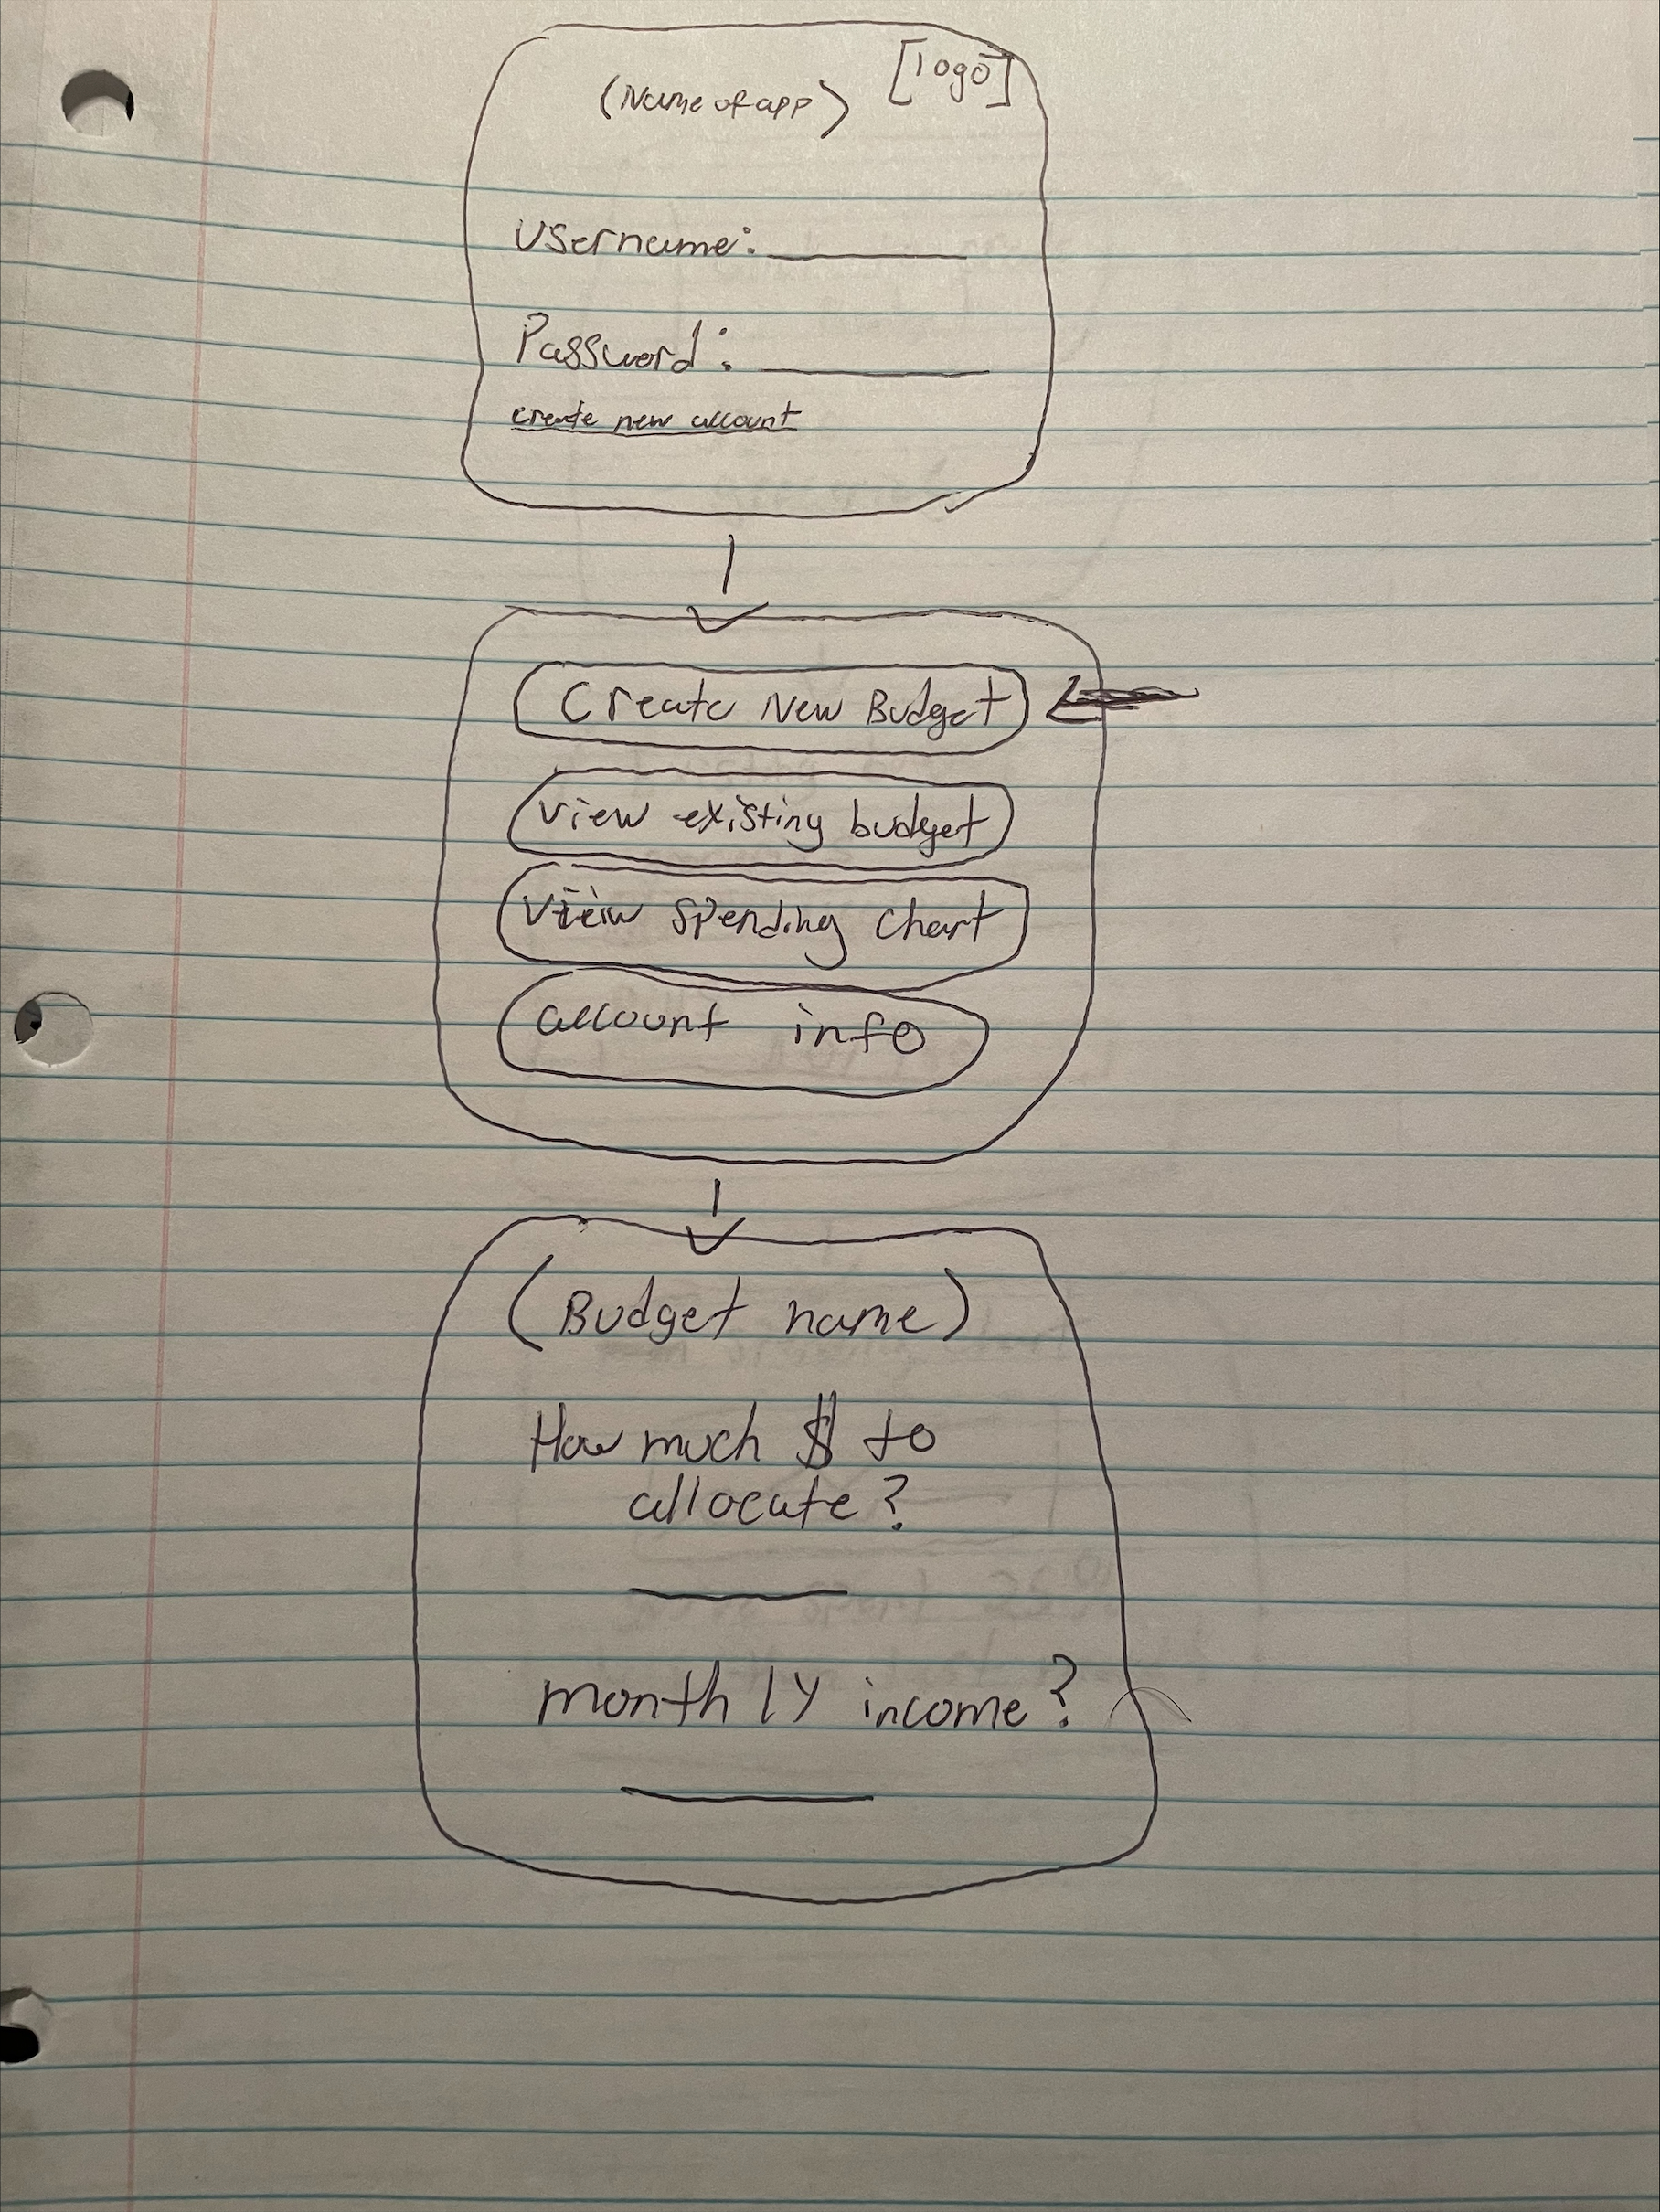 [logo]
(Name of app)
Username:
Password:
create new account
Create New Budget
View existing budget
View spending chart
account info
(Budget name)
How much $ to
allocate?
monthly income?